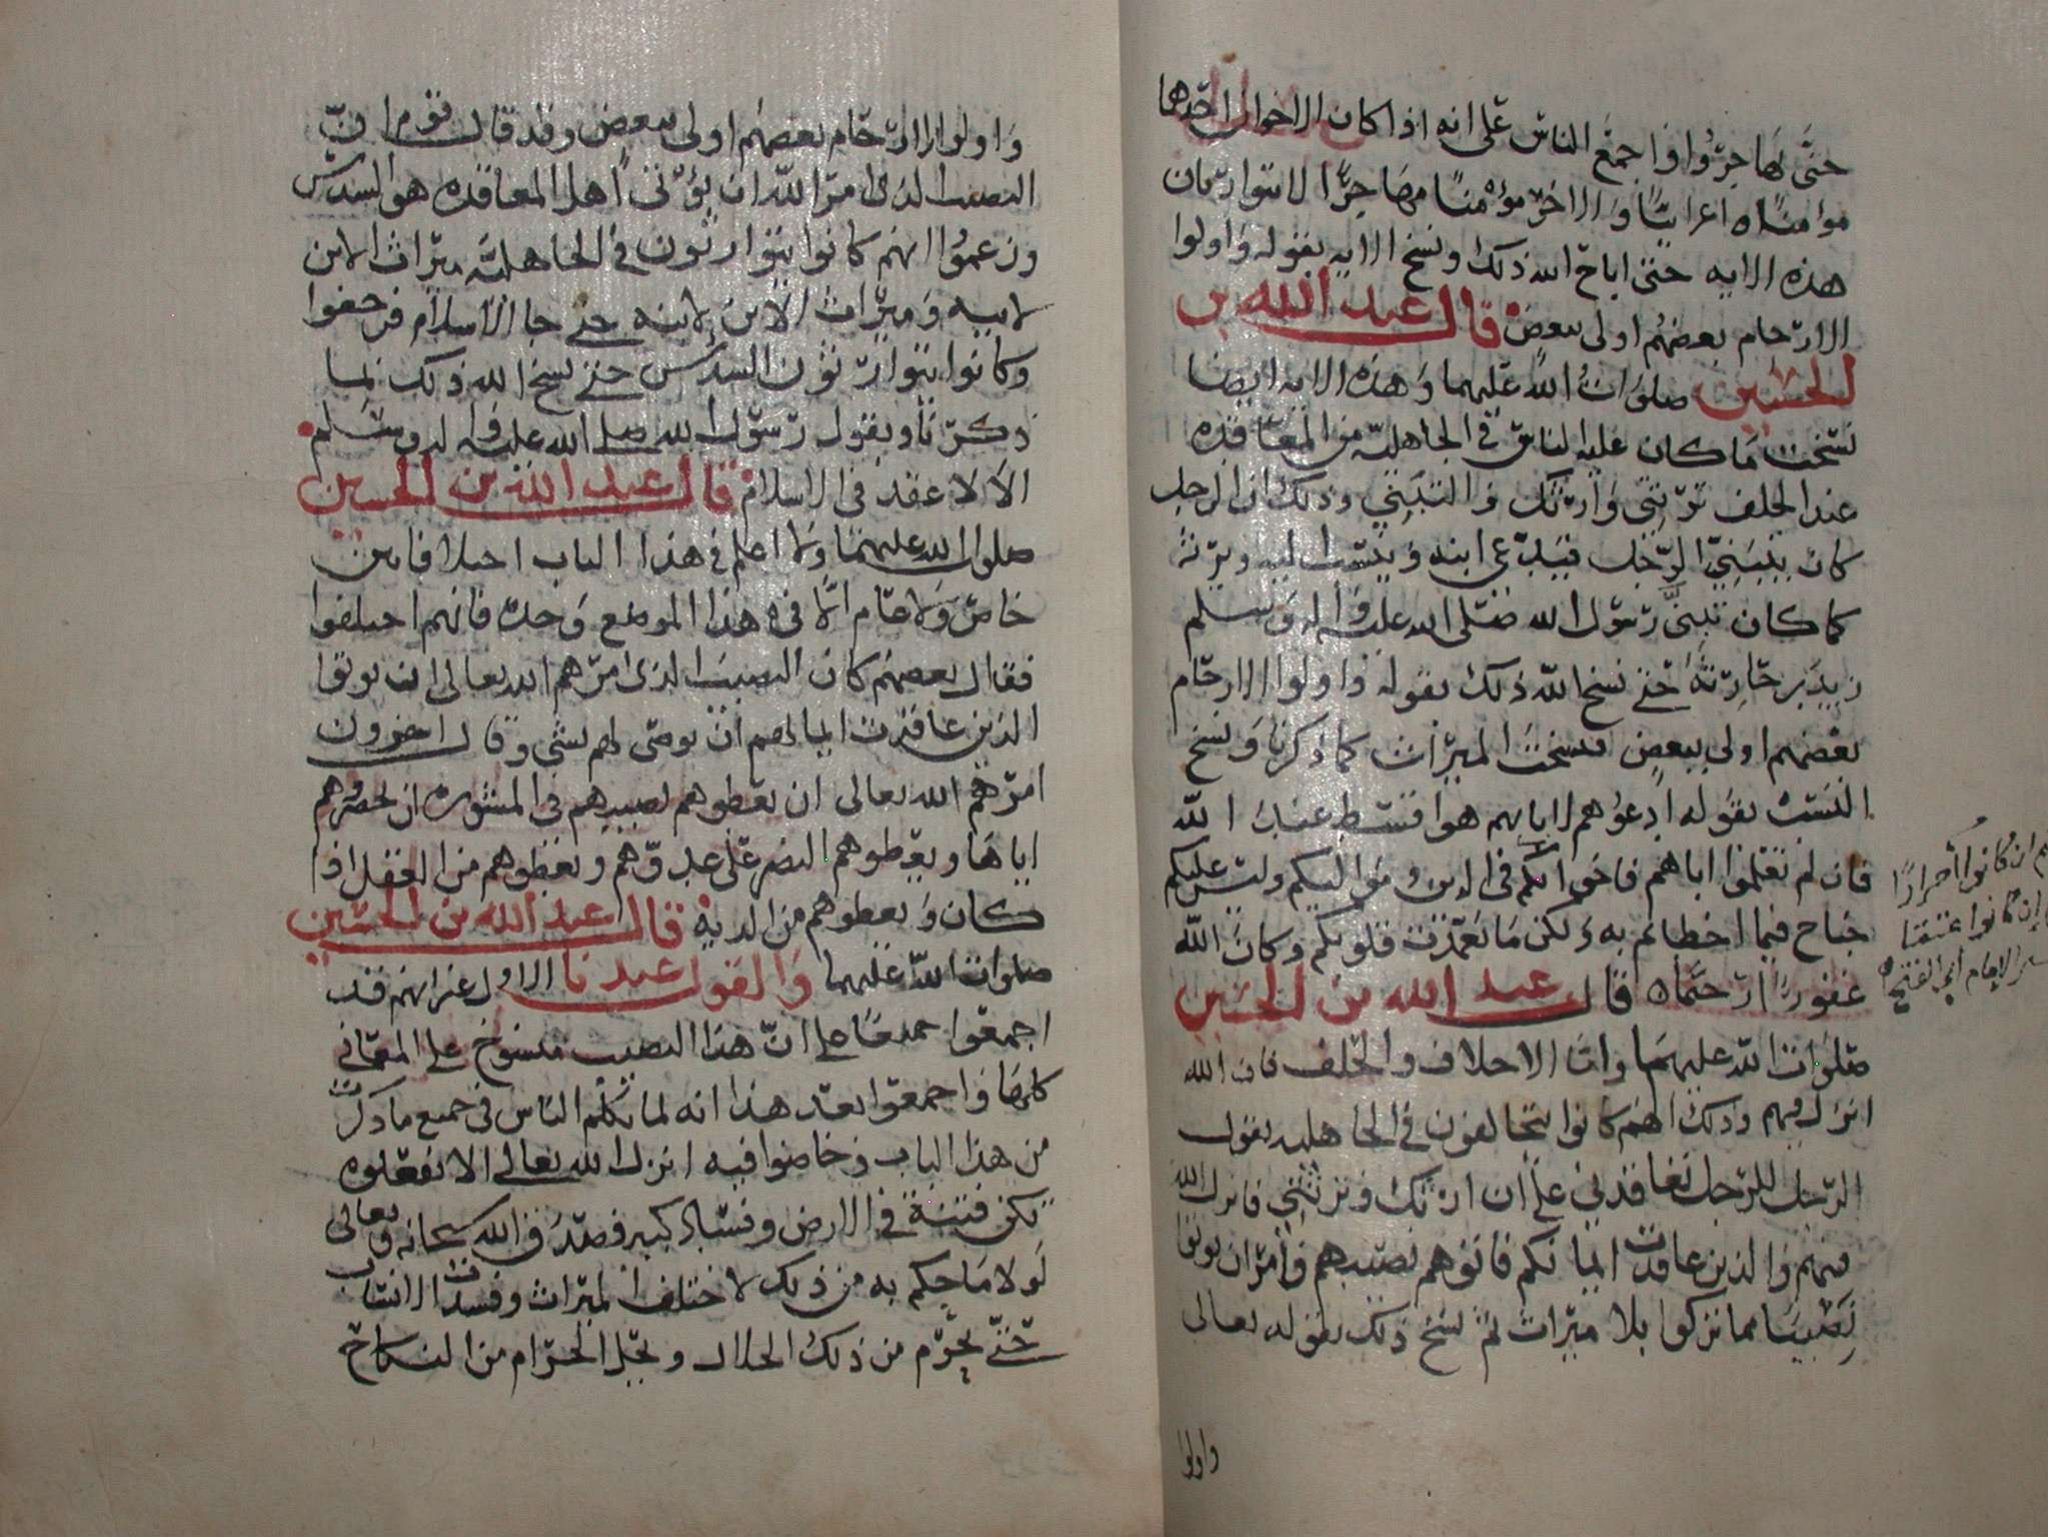 حتى يهاجروا واجمع الناس على انه اذا كان الاخوان احدهما
مؤمنا اعرابيا والاخر مؤمنا مهاجرا لا يتوارثان
هذه الايه حتى اباح الله ذلك ونسخ الايه بقوله واولوا
الارحام بعضهم اولى ببعض قال عبد الله بن
الحسين صلوات الله عليهما وهذه الايه ايضا
نسخت ما كان عليه الناس في الجاهلية من المعاقده
عند الحلف ترثني وارثك والتبني وذلك ان الرجل
كان يتبنى الرجل فيدعى ابنه وينسب اليه ويرثه
كما كان تبنى رسول الله صلى الله عليه وآله وسلم
زيد بن حارثة حتى نسخ الله ذلك بقوله واولوا الارحام
بعضهم اولى ببعض فنسخت الميراث كما ذكرنا ونسخ
النسب بقوله ادعوهم لابايهم هو اقسط عند الله
فان لم تعلموا اباهم فاخوانكم في الدين ومواليكم وليس عليكم
جناح فيما اخطاتم به ولكن ما تعمدت قلوبكم وكان الله
غفورا رحيما قال عبد الله بن الحسين
صلوات الله عليهما واما الاحلاف والحلف فان الله
انزل فيهم وذلك انهم كانوا يتحالفون في الجاهليه يقول
الرجل للرجل تعاقدني على ان ارثك وترثني فانزل الله
فيهم والذين عاقدت ايمانكم فاتوهم نصيبهم وامر ان يوتوا
نصيبا مما تركوا بلا ميراث ثم نسخ ذلك بقوله تعالى
واولوا
ان كانوا أحرارًا
إن كانوا عتقا
الإمام أبي الفتح
واولوا الارحام بعضهم اولى ببعض وقد قال قوم ان
النصيب الذي امر الله ان يؤتى اهل المعاقده هو السدس
وزعموا انهم كانوا يتوارثون في الجاهلية ميراث الابن
لابيه وميراث الاب لابنه حتى جا الاسلام فرجعوا
وكانوا يتوارثون السدس حتى نسخ الله ذلك بما
ذكرنا وبقول رسول الله صلى الله عليه وآله وسلم
الا لا عقد في الاسلام قال عبد الله بن الحسين
صلوات الله عليهما ولا اعلم في هذا الباب اختلافا بين
خاص ولا عام الا في هذا الموضع وحده فانهم اختلفوا
فقال بعضهم كان النصيب الذي امرهم الله تعالى ان يوتوا
الذين عاقدت ايمانهم ان يوصى لهم بشي وقال اخرون
امرهم الله تعالى ان يعطوهم نصيبهم في المشوره ان يحضروهم
اياها ويعطوهم النصر على عدوهم ويعطوهم من العقل اذا
كان ويعطوهم من الديه قال عبد الله بن الحسين
صلوات الله عليهما والقول عندنا الاول غير انهم قد
اجمعوا جميعا على ان هذا النصيب منسوخ على المعاني
كلها واجمعوا بعد هذا انه لما تكلم الناس في جميع ما ذكرت
من هذا الباب وخاضوا فيه انزل الله تعالى الا تفعلوه
تكن فتنة في الارض وفساد كبير فصدق الله سبحانه وتعالى
لولا ما حكم به من ذلك لاختلف الميراث وفسدت الانساب
حتى يحرم من ذلك الحلال ويحل الحرام من النكاح